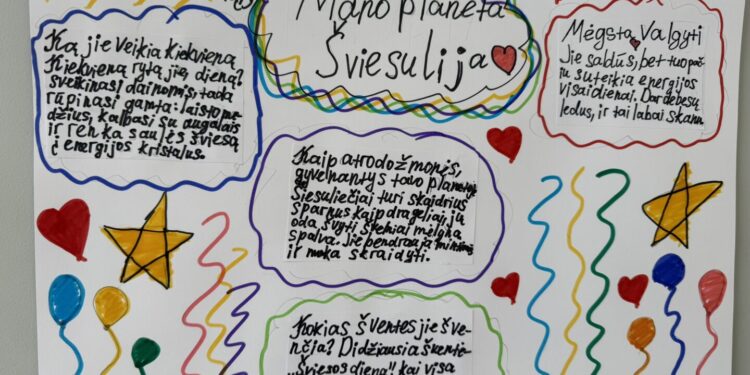 Mano planeta
Šviesulija
Ką jie veikia kiekvieną
Kiekvieną rytą jie, dieną?
sveikinasi dainomis, tada
rūpinasi gamta: laisto me-
džius, kalbasi su augalais
ir renka saulės šviesą
į energijos kristalus.
Mėgsta Valgyti
Jie saldūs, bet tuo pač-
iu suteikia energijos
visai dienai. Dar debesų
ledus, ir tai labai skanu.
Kaip atrodo žmonės,
gyvenantys tavo planetoje
Šiesuliečiai turi skaidrius
sparnus kaip drugeliai, jų
oda švyti švelniai mėlyna
spalva. Jie bendrauja mintimis
ir moka skraidyti.
Kokias šventes jie šve-
nčia? Didžiausia šventė
„Šviesos diena", kai visa